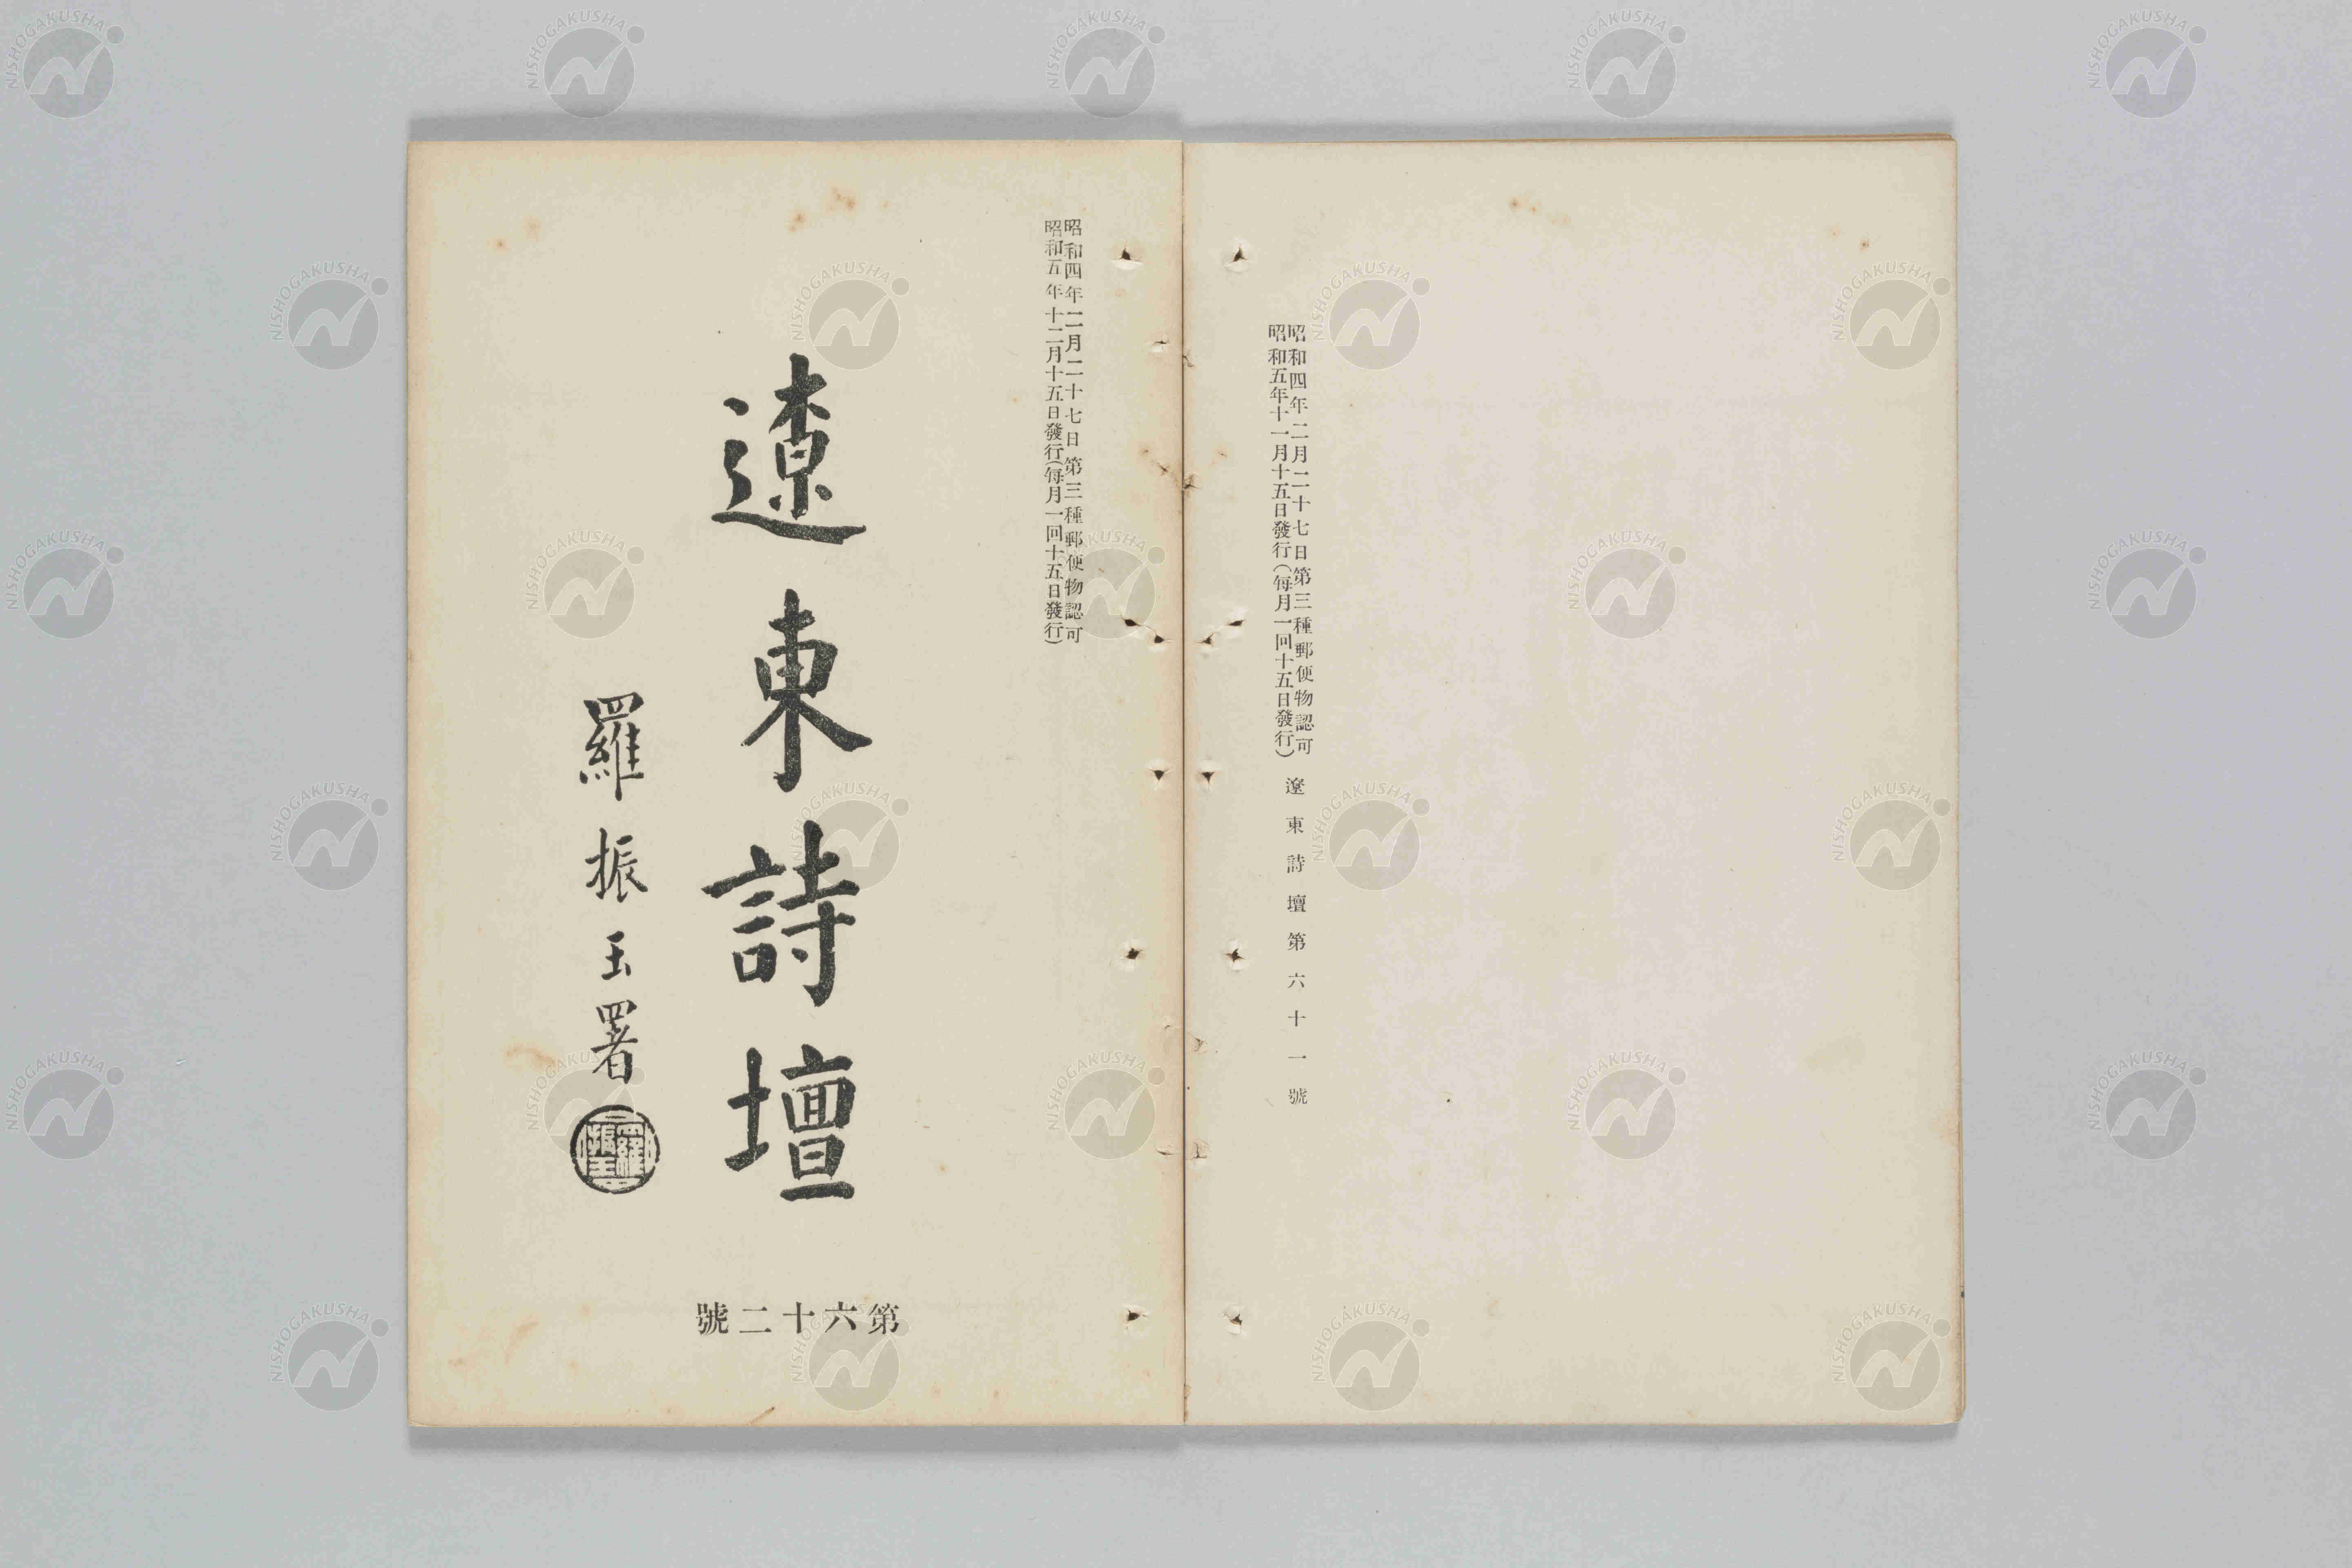 昭和四年二月二十七日第三種郵便物認可
昭和五年十一月十五日發行(每月一回十五日發行)
遼東詩壇第六十一號
昭和四年二月二十七日第三種郵便物認可
昭和五年十二月十五日發行(每月一回十五日發行)
遼東詩壇
羅振玉署
羅振玉
第六十二號
NISHOGAKUSHA